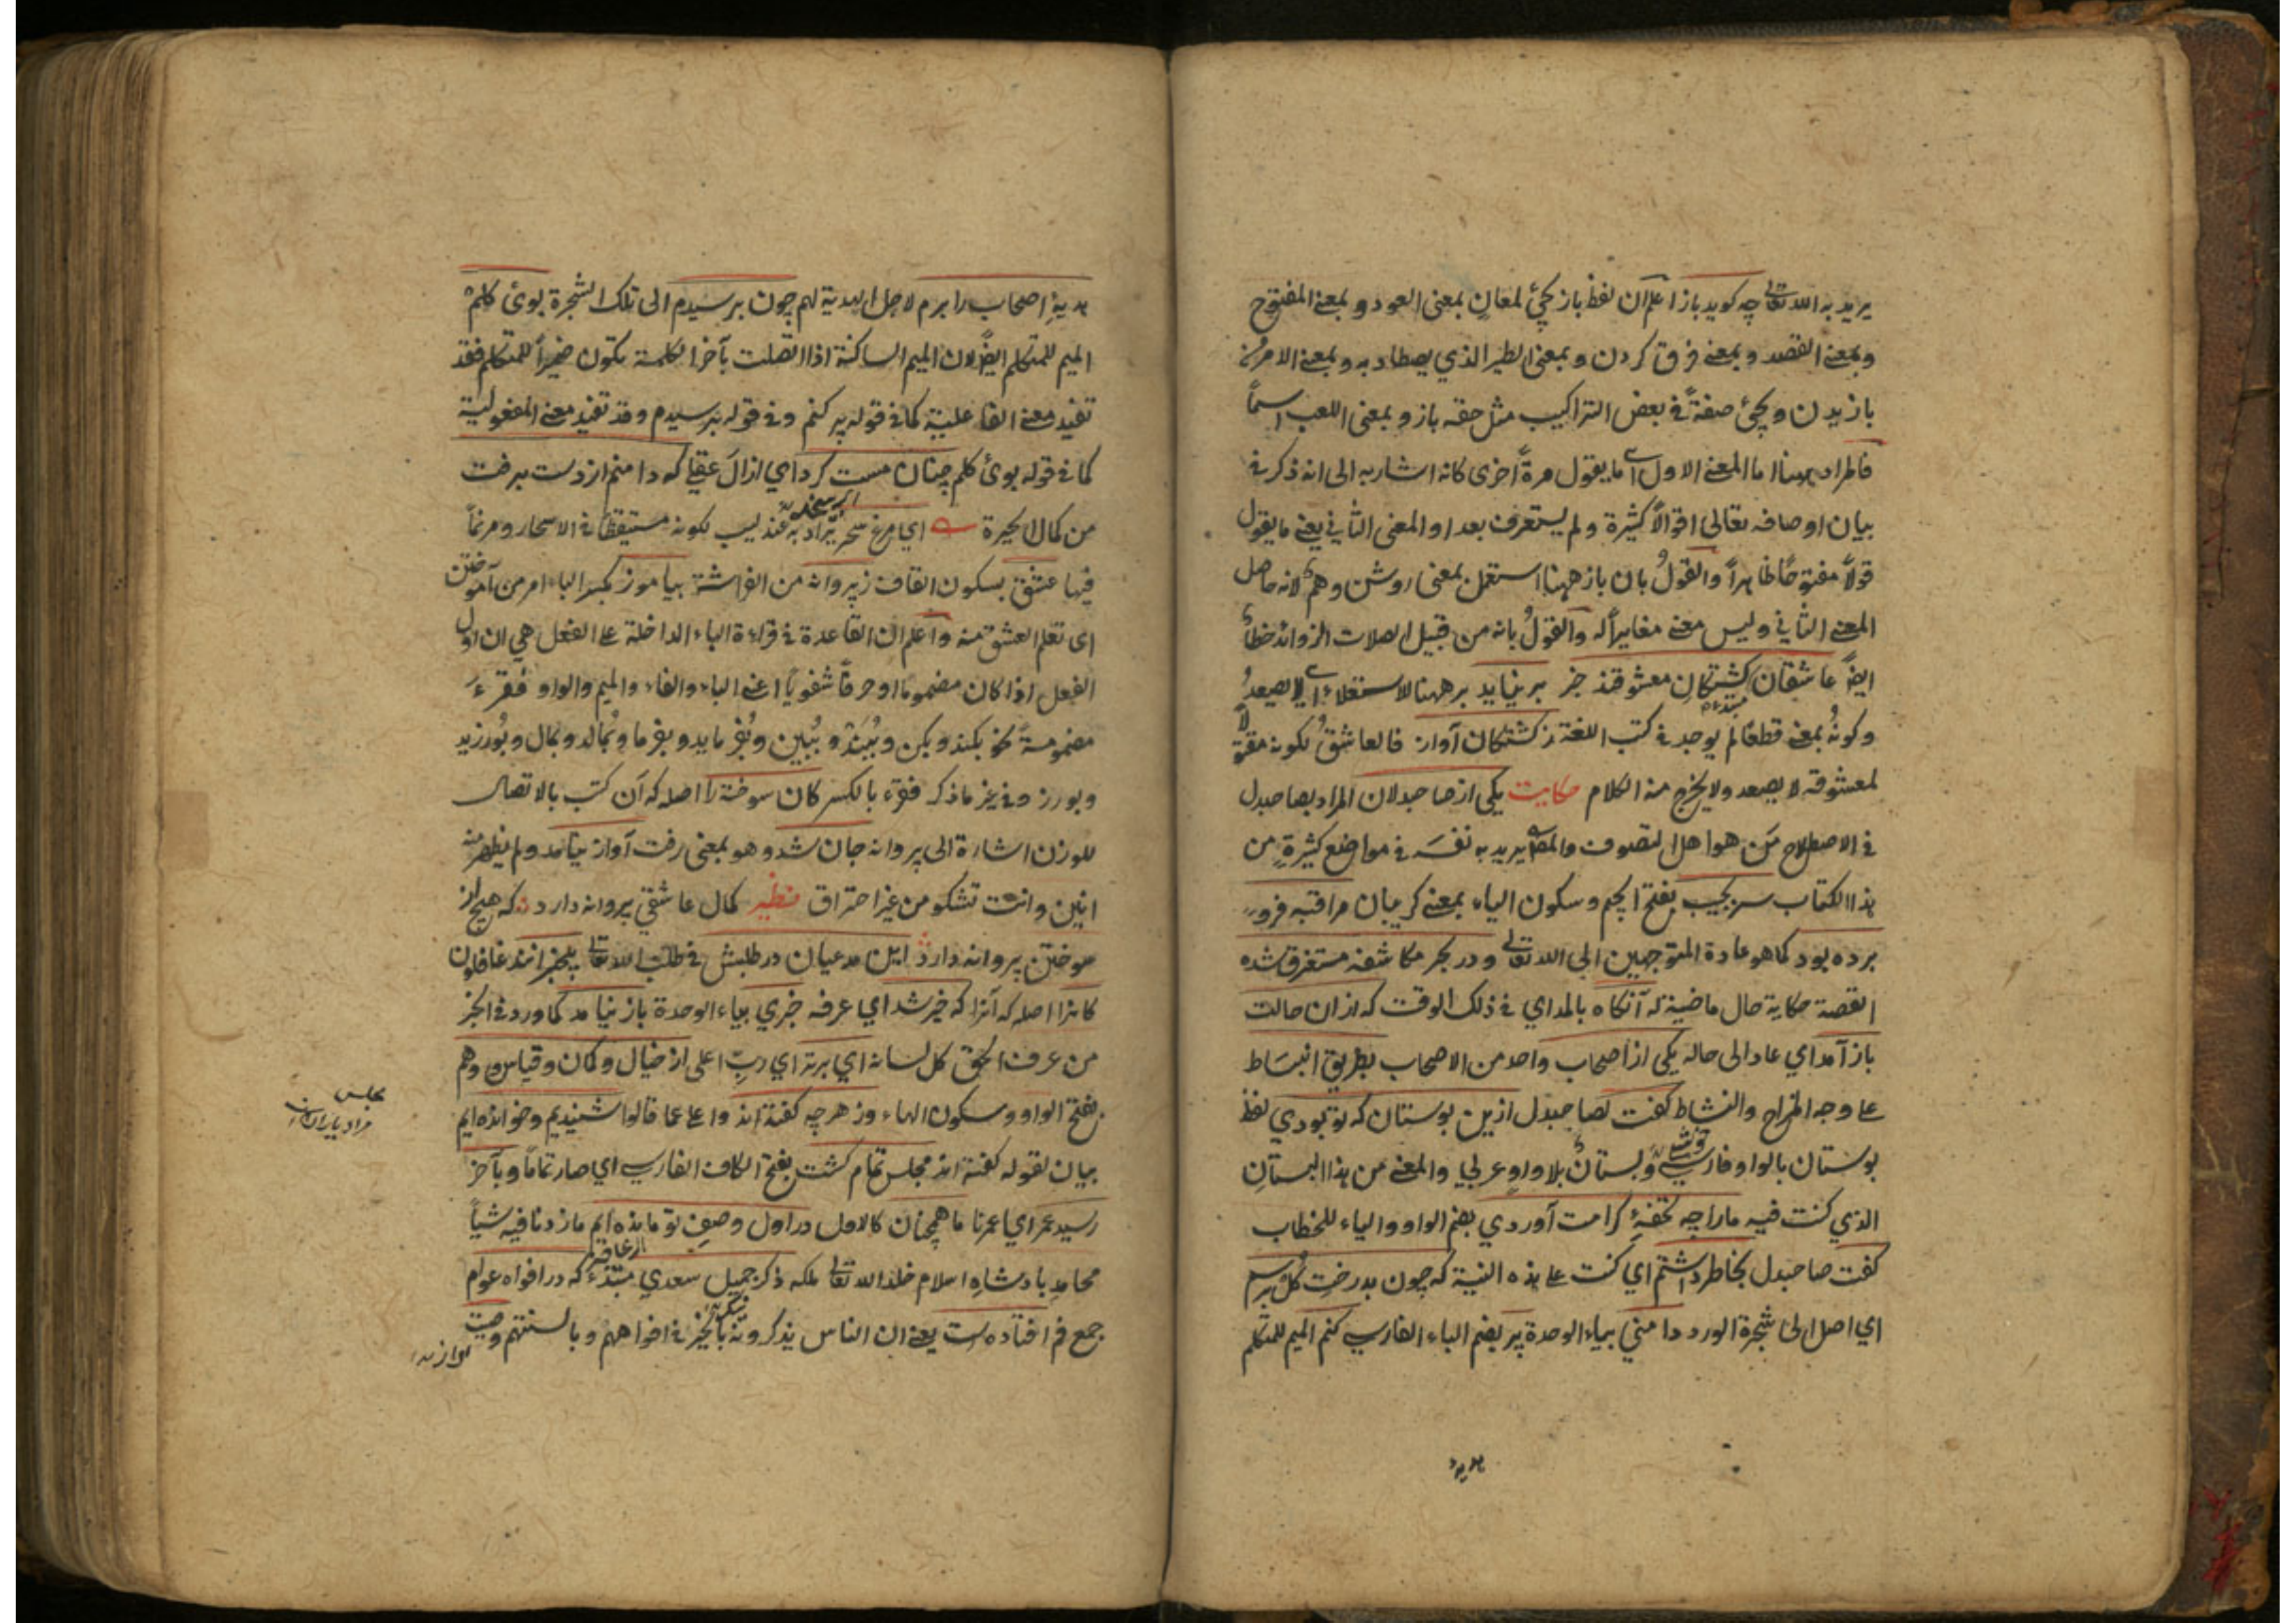 يريد به الله تعالى چه كويد باز اعلم ان لفظ باز يجئ لمعانٍ بمعنى العود و بمعنى المفتوح
وبمعنى القصد و بمعنى فرق كردن و بمعنى الطير الذي يصطاد به و بمعنى الامر من
بازيدن ويجئ صفةً في بعض التراكيب مثل حقه باز و بمعنى اللعب اسماً
فالمراد ههنا اما المعنى الاول اى ما يقول مرةً اخرى كانه اشار به الى انه ذكر في
بيان اوصافه تعالى اقوالاً كثيرة ولم يستعرف بعد او المعنى الثاني يعني ما يقول
قولاً مفتوحًا ظاهراً والقولُ بان باز ههنا استعمل بمعنى روشن وهمٌ لانه حاصل
المعنى الثاني وليس معنى مغايراً له والقولُ بانه من قبيل الصلات الزوائد خطأٌ
ايضًا عاشقان كشتكانِ معشوقند خبر برنيايد بر ههنا للاستعلاء اى لا يصعدُ
وكونُه بمعنى قطعًا لم يوجد في كتب اللغة ز كشتكان آواز فالعاشقُ لكونه مقتولاً
لمعشوقه لا يصعد ولا يخرج منه الكلام حكايت يكى از صاحبدلان المراد بصاحبدل
في الاصطلاح مَن هو اهل التصوف والمص يريد به نفسَه في مواضع كثيرةٍ من
هذا الكتاب سر بجيب بفتح الجيم وسكون الياء بمعنى كريبان مراقبه فرو
برده بود كما هو عادة المتوجهين الى الله تعالى و در بحر مكاشفه مستغرق شده
القصة حكاية حال ماضية له آنكاه بالمد اي في ذلك الوقت كه از ان حالت
باز آمد اي عاد الى حاله يكى از اصحاب واحد من الاصحاب بطريق انبساط
على وجه المزاح والنشاط كفت لصاحبدل ازين بوستان كه تو بودي لفظ
بوستان بالواو فارسي وبستانٌ بلا واوٍ عربي والمعنى من هذا البستانِ
الذي كنت فيه مارا چه تحفهٔ كرامت آوردي بضم الواو والياء للخطاب
كفت صاحبدل بخاطر داشتم اي كنت على هذه النية كه چون بدرختِ كُل برسم
اي اصل الى شجرة الورد دامني بياء الوحدة پر بضم الباء الفارسي كنم الميم للمتكلم
هديهٔ
هديهٔ اصحاب را برم لاجل الهدية لهم چون برسيدم الى تلك الشجرة بوئ كلم
الميم للمتكلم ايضًا لان الميم الساكنة اذا اتصلت بآخر الكلمة يكون ضميراً للمتكلم فقد
تفيد معنى الفاعلية كما في قوله پر كنم وفي قوله برسيدم وقد تفيد معنى المفعولية
كما في قوله بوئ كلم چنان مست كرد اي ازال عقلي كه دامنم از دست برفت
من كمال الحيرة اي مرغ سحر يراد به عندليب لكونه مستيقظًا في الاسحار ومرنمًا
فيها عشق بسكون القاف ز پروانه من الفراشة بياموز بكسر الباء امر من آموختن
اى تعلم العشق منه واعلم ان القاعدة في قراءة الباء الداخلة على الفعل هي ان اول
الفعل اذا كان مضمومًا او حرفًا شفويًا اعني الباء والفاء والميم والواو فتقرءَ
مضمومةً نحو بكند وبكن و بُبيند و بُبين وبُفرمايد و بفرما وبُمالد وبمال وبُورزيد
وبورز وفي غير ما ذكر فتقرء بالكسر كان سوخته را اصله كه آن كتب بالاتصال
للوزن اشارة الى پروانه جان شد و هو بمعنى رفت آواز نيامد ولم يظهر منه
انين وانت تشكو من غير احتراق نظير كمال عاشقي پروانه دارد كه هيچ از
سوختن پروانه دارد اين مدعيان در طلبش في طلب الله تعالى بيخبرانند غافلون
كانرا اصله كه آنرا كه خبر شد اي عرفه خبري بياء الوحدة باز نيامد كما ورد في الخبر
من عرف الحق كل لسانه اي برتر اي ربّ اعلى از خيال و كمان و قياس و وهم
بفتح الواو وسكون الهاء وز هر چه كفته اند واعلى عما قالوا شنيديم وخوانده ايم
بيان لقوله كفته اند مجلس تمام كشت بفتح الكاف الفارسي اي صار تمامًا وبآخر
رسيد عمر اي عمرنا ما همچنان كالاول در اول وصفِ تو مانده ايم ما زدنا فيه شيأً
محامدِ بادشاهِ اسلام خلد الله تعالى ملكه ذكر جميل سعدي مبتدء كه در افواه عوام
جمع فم افتاده ست يعني ان الناس يذكرونه بالخير في افواههم و بالسنتهم وصيت
مجلس
مراد ياران